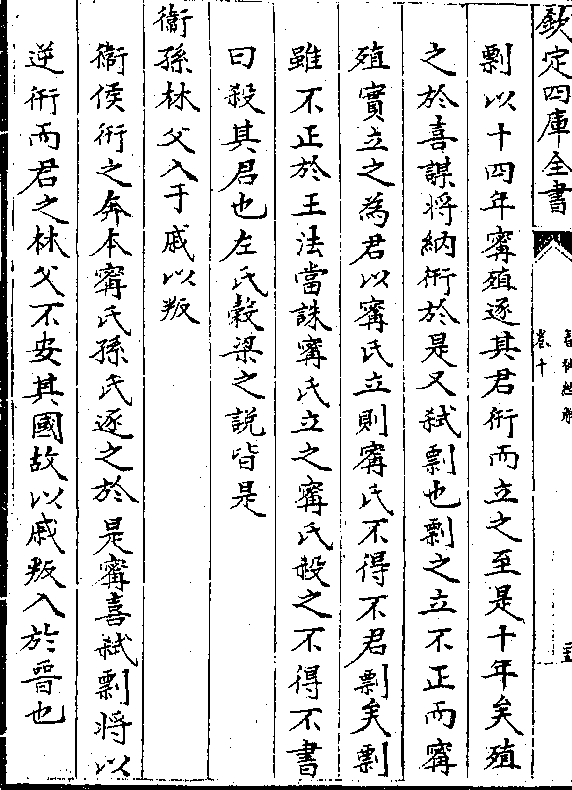 欽定四庫全書
春秋經解
卷十
剽以十四年甯殖逐其君衎而立之至是十年矣殖
之於喜謀將納衎於是又弒剽也剽之立不正而甯
殖實立之為君以甯氏立則甯氏不得不君剽矣剽
雖不正於王法當誅甯氏立之甯氏殺之不得不書
曰殺其君也左氏穀梁之説皆是
衞孫林父入于戚以叛
衞侯衎之奔本甯氏孫氏逐之於是甯喜弒剽將以
逆衎而君之林父不安其國故以戚叛入於晉也